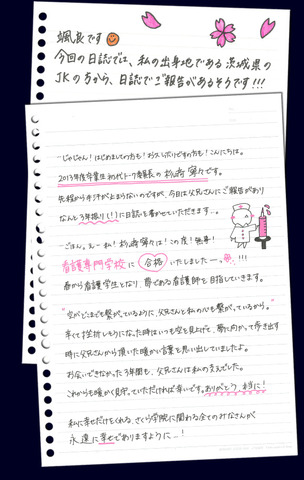 颯良です
今回の日誌では、私の出身地である茨城県の
JKの方から、日誌でご報告があるそうです!!!
"じゃじゃん!はじめましての方も!お久しぶりですの方も!こんにちは。
2013年度卒業生 初代トーク委員長の杉崎 寧々です。
先程から手汗が止まらないのですが、今日は父兄さんにご報告があり
なんと3年振り(!)に日誌を書かせていただきます…。
ごほん。えー 私!杉崎寧々は!この度!無事!
看護専門学校に 合格 いたしましたーっ。!!!
春から看護学生となり、夢である看護師を目指していきます。
"空がどこまでも繋がっているように、父兄さんと私の心も繋がっているから。"
辛くて挫折しそうになった時はいつも空を見上げて、夢に向かって歩き出す
時に父兄さんから頂いた暖かい言葉を思い出していましたよ。
お会いできなかった3年間も、父兄さんは私の支えでした。
これからも暖かく見守っていただければ幸いです。ありがとう 本当に!
私に幸せだけをくれる、さくら学院に関わる全てのみなさんが
永遠に幸せでありますように…!